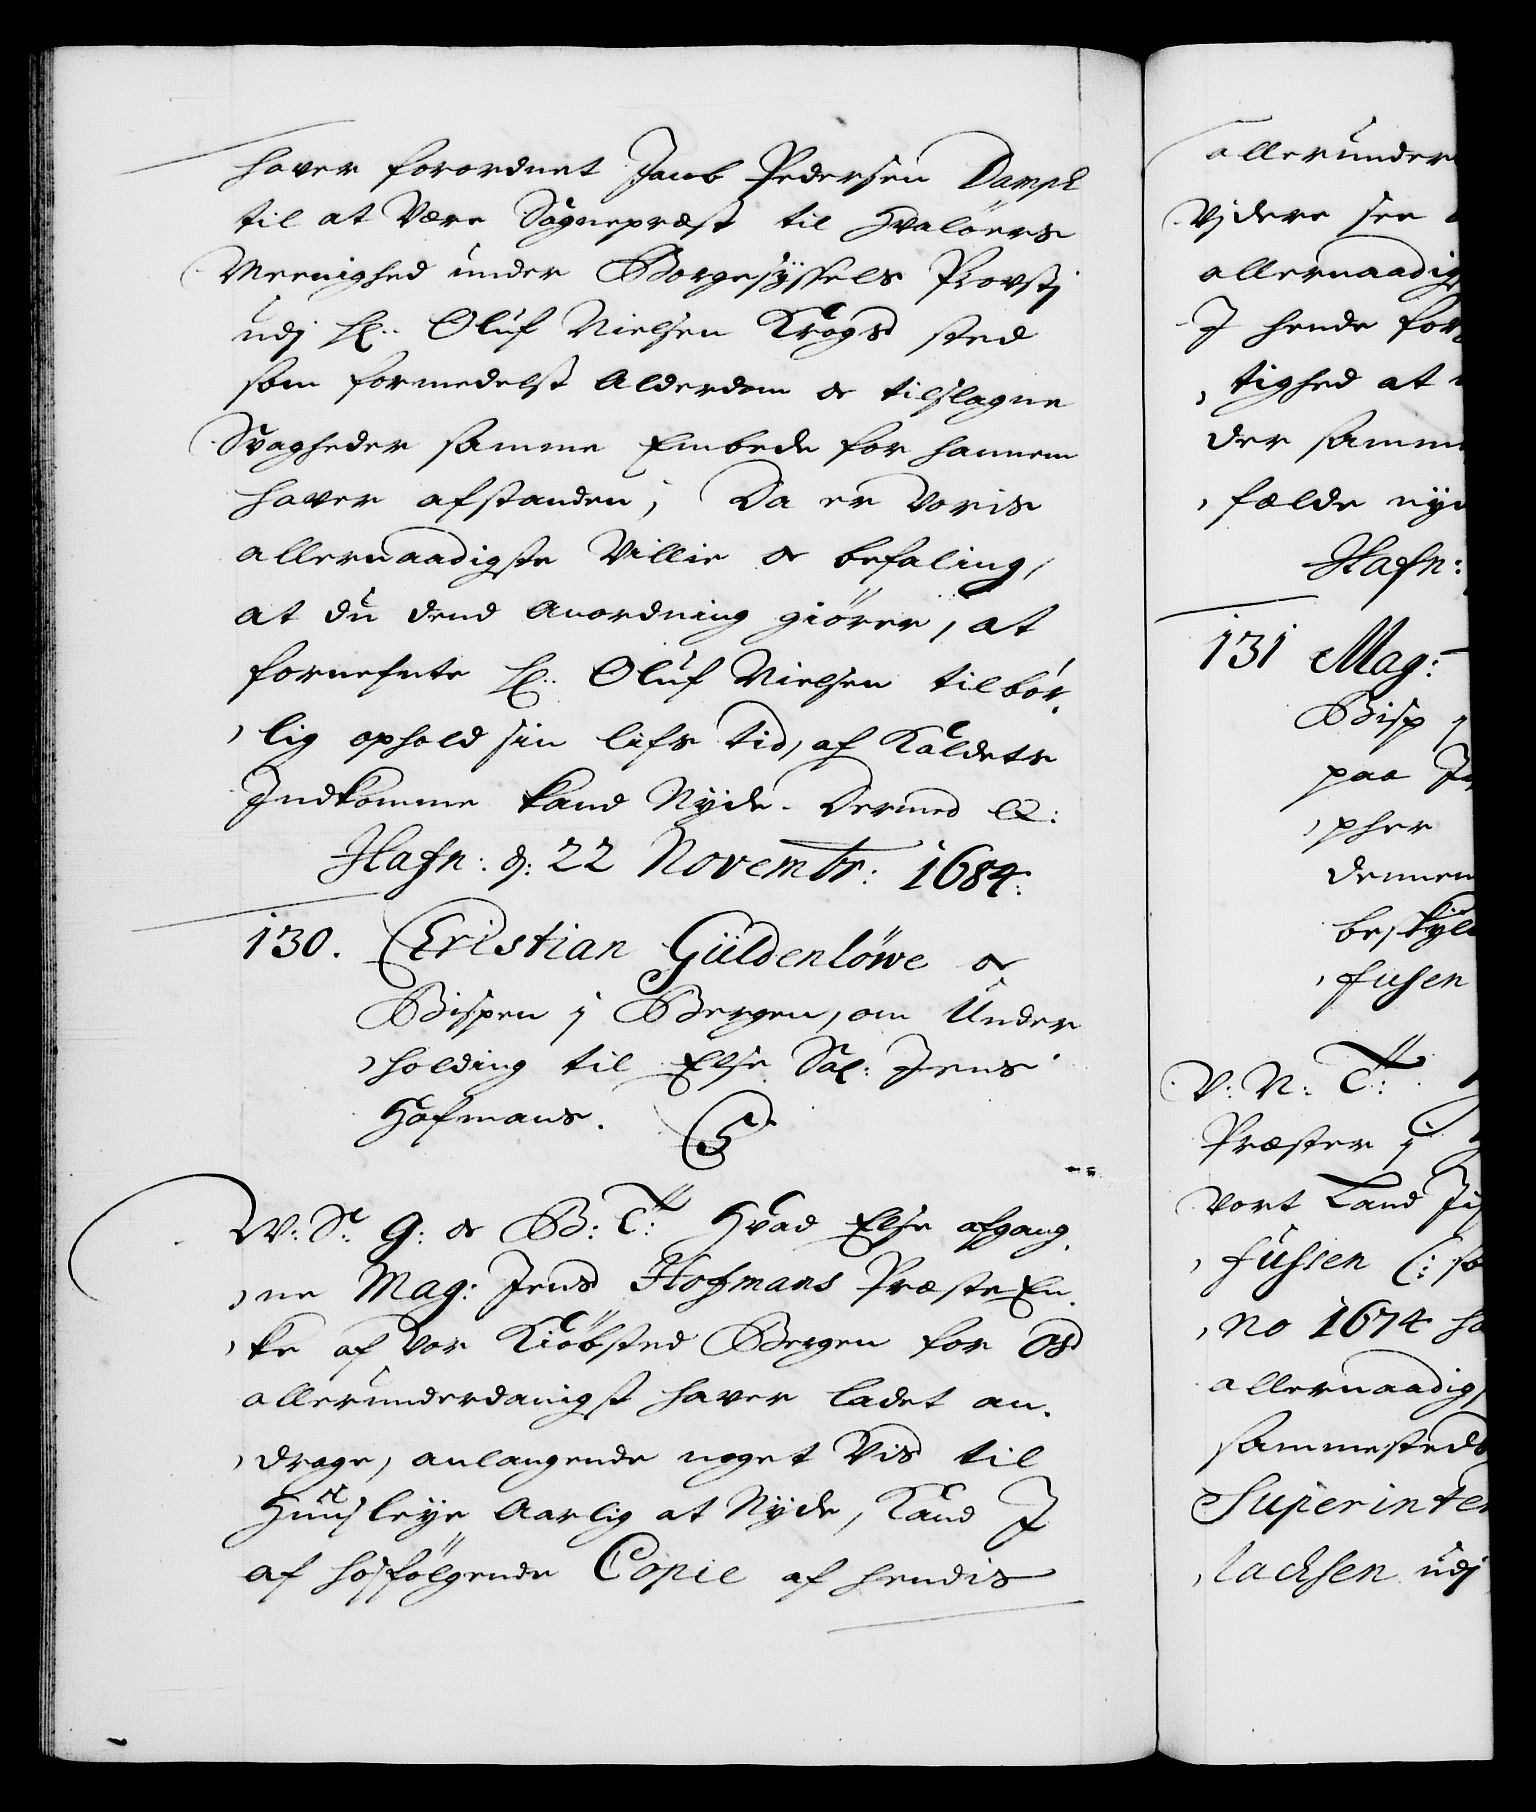 hafver forordnet Jacob Pedersen Dampe
til at være Sognepræst til Hvalöers
Meenighed under Borgesyssels Provstj
udj hr: Oluf Nielsen Krogs sted
som formedelst Alderdom oc tilslagne
Svagheder samme Embede for hannem
hafver afstanden; Da er Voris
allernaadigste Villie oc befaling,
at du dend Anordning giörer, at
fornefnte hr: Oluf Nielsen tilbör,
lig ophold sin lifs tid, af Kaldets
Indkomme kand Nyde. Dermed etc:
Hafn: d: 22 Novembr: 1684.
130. Christian Güldenlöwe oc
Bispen j Bergen, om Under
holding til Else Sal: Jens
Hofmans.
V: S: G: oc B: T: Hvad Else afgang,
ne Mag: Jens Hofmans Præste En,
ke af Vor Kiöbsted Bergen for Os
allerunderdanigst hafver ladet an,
drage, anlangende noget Vis til
Huusleye Aarlig at Nyde, Kand I
af hosfölgende Copie af hendis
allerunder
Vjdere see
allernaadig
I hende for
tighed at
der samme
fælde ny
Hafn:
131 Mag:
Bisp
paa
pher
dennem
beskyl
fusen
V: N: T:
Præster j
Vort Land
fussen (: so
no 1674 ha
allernaadig
sammesteds
Superinten
Isachsen udj